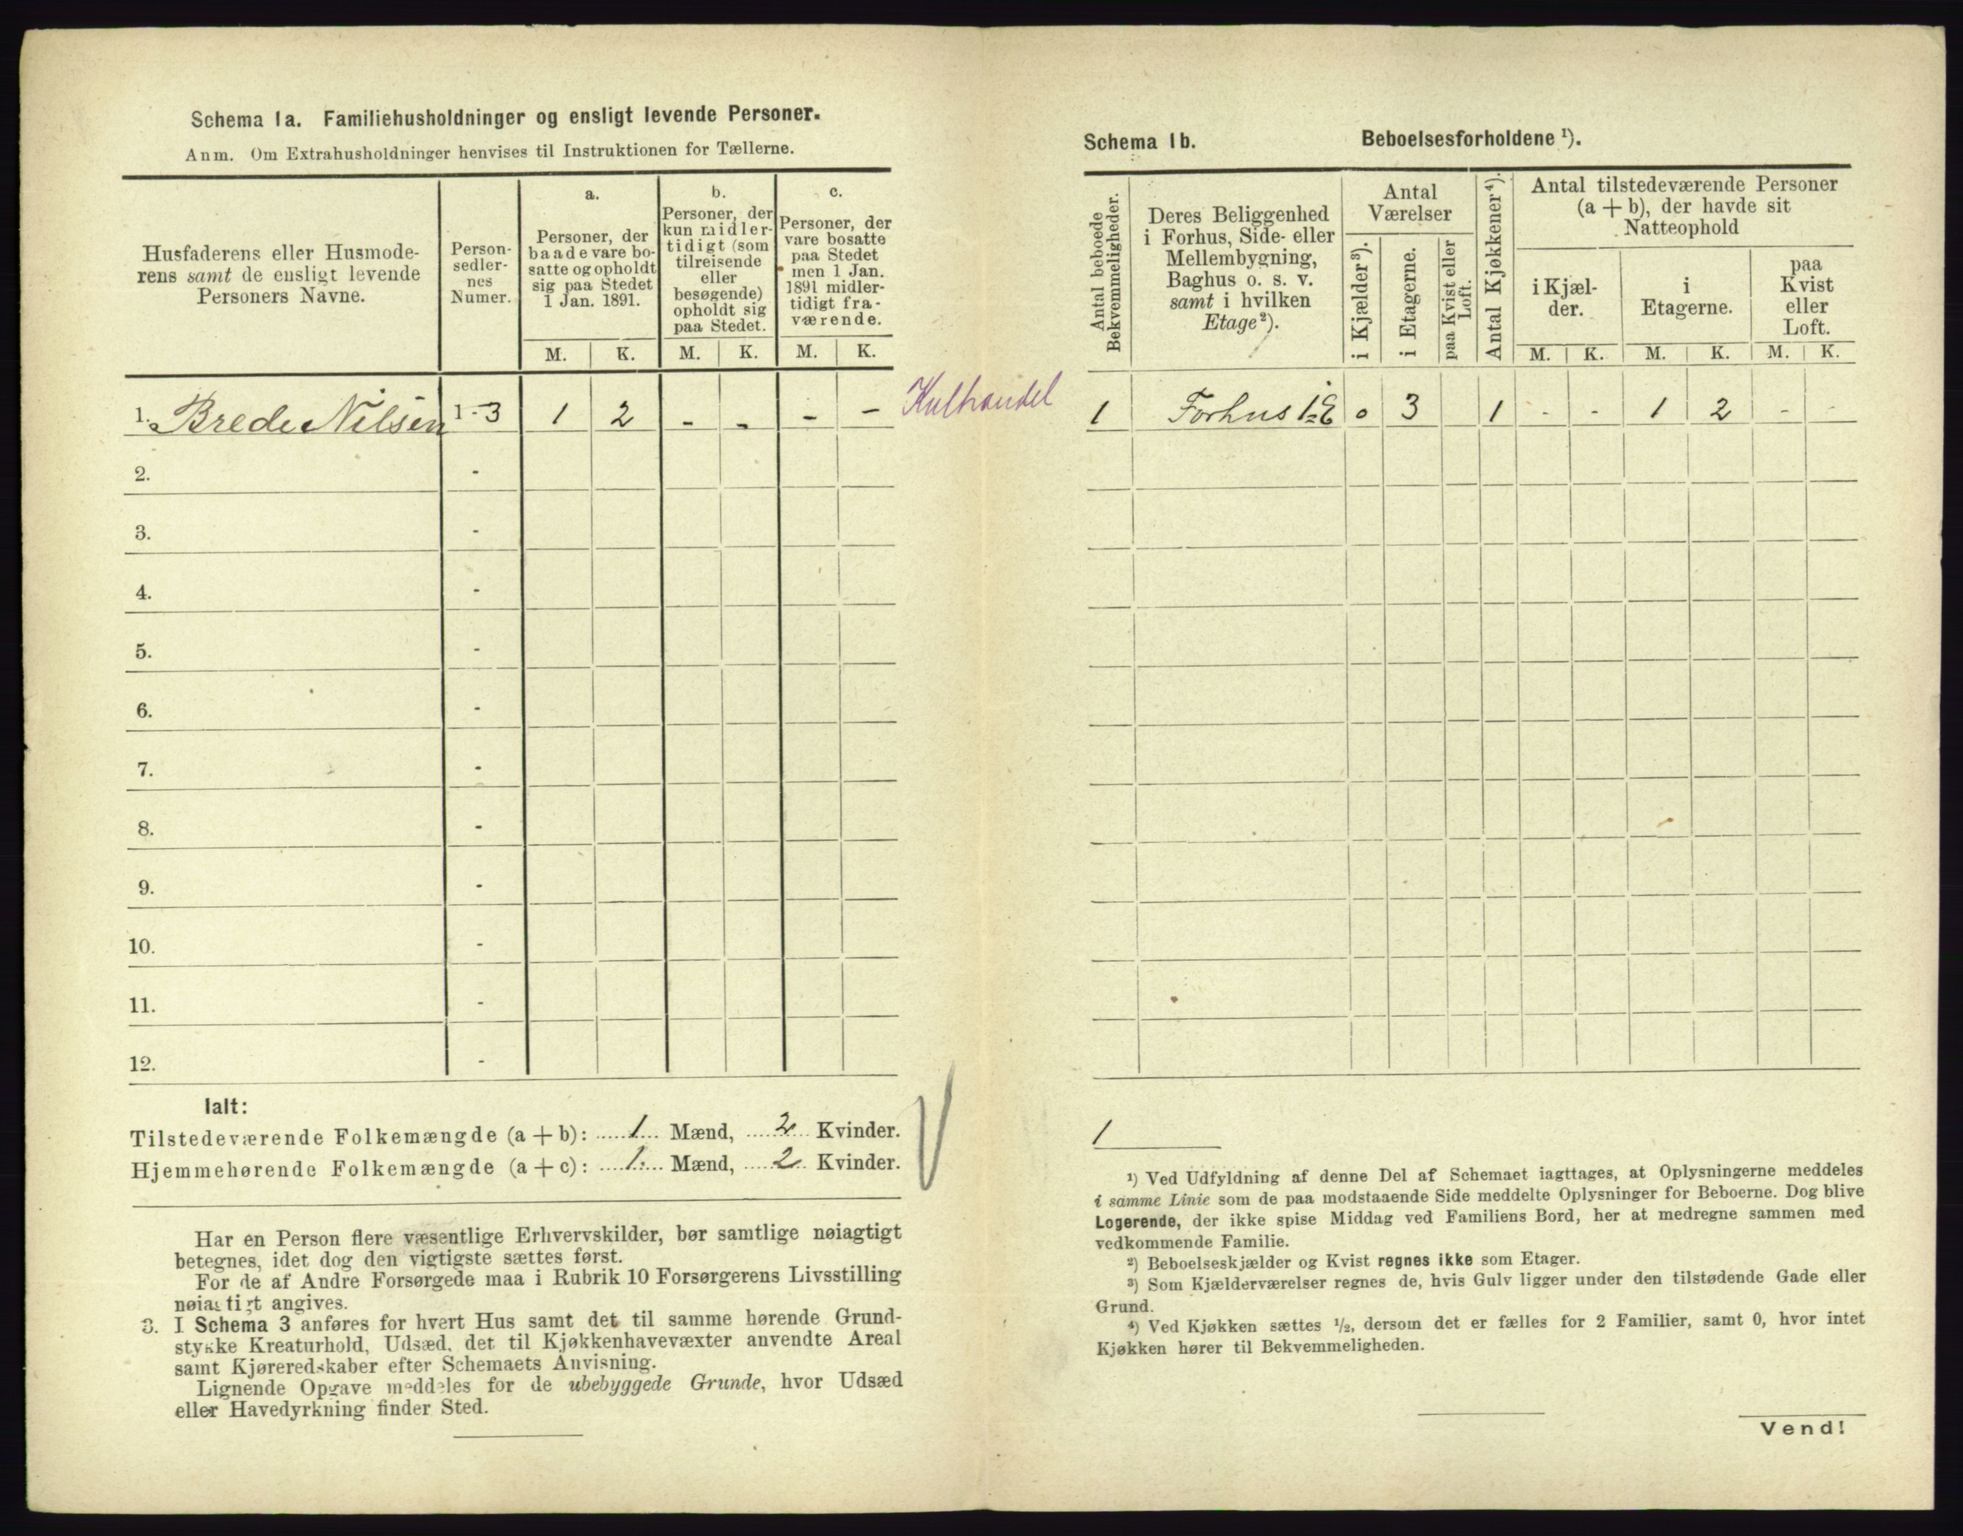 Schema 1a. Familiehusholdninger og ensligt levende Personer.
Anm. Om Extrahusholdninger henvises til Instruktionen for Tællerne.
Husfaderens eller Husmode-
rens samt de ensligt levende
Personers Navne.
Person-
sedler-
nes
Numer.
a.
Personer, der
baade vare bo-
satte og opholdt
sig paa Stedet
1 Jan. 1891.
b.
Personer, der
kun midler-
tidigt (som
tilreisende
eller
besøgende)
opholdt sig
paa Stedet.
c.
Personer, der
vare bosatte
paa Stedet
men 1 Jan.
1891 midler-
tidigt fra-
værende.
M. K. M. K. M. K.
1. Brede Nilsen 1 - 3 1 2 - - - - Kulhandel
2. -
3. -
4. -
5. -
6. -
7. -
8. -
9. -
10. -
11. -
12. -
Ialt:
Tilstedeværende Folkemængde (a + b): 1 Mænd, 2 Kvinder.
Hjemmehørende Folkemængde (a + c): 1 Mænd, 2 Kvinder.
Har en Person flere væsentlige Erhvervskilder, bør samtlige nøiagtigt
betegnes, idet dog den vigtigste sættes først.
For de af Andre Forsørgede maa i Rubrik 10 Forsørgerens Livsstilling
nøiagtigt angives.
3. I Schema 3 anføres for hvert Hus samt det til samme hørende Grund-
stykke Kreaturhold, Udsæd, det til Kjøkkenhavevæxter anvendte Areal
samt Kjøreredskaber efter Schemaets Anvisning.
Lignende Opgave meddeles for de ubebyggede Grunde, hvor Udsæd
eller Havedyrkning finder Sted.
Schema 1b. Beboelsesforholdene ¹).
Antal beboede
Bekvemmeligheder.
Deres Beliggenhed
i Forhus, Side- eller
Mellembygning,
Baghus o. s. v.
samt i hvilken
Etage ²).
Antal
Værelser
i Kjælder ³).
i Etagerne.
paa Kvist eller
Loft.
Antal Kjøkkener ⁴).
Antal tilstedeværende Personer
(a + b), der havde sit
Natteophold
i Kjæl-
der.
i
Etagerne.
paa
Kvist
eller
Loft.
M. K. M. K. M. K.
1 Forhus 1ₑ E 0 3 1 - - 1 2 - -
1
¹) Ved Udfyldning af denne Del af Schemaet iagttages, at Oplysningerne meddeles
i samme Linie som de paa modstaaende Side meddelte Oplysninger for Beboerne. Dog blive
Logerende, der ikke spise Middag ved Familiens Bord, her at medregne sammen med
vedkommende Familie.
²) Beboelseskjælder og Kvist regnes ikke som Etager.
³) Som Kjælderværelser regnes de, hvis Gulv ligger under den tilstødende Gade eller
Grund.
⁴) Ved Kjøkken sættes ½, dersom det er fælles for 2 Familier, samt 0, hvor intet
Kjøkken hører til Bekvemmeligheden.
Vend!